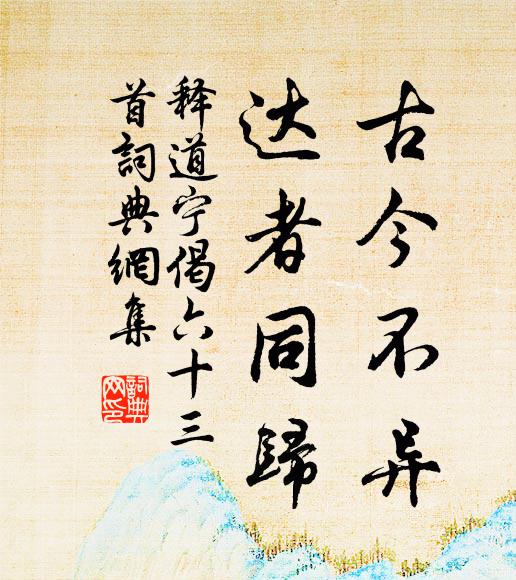 古今不异
达者同歸
释道宁偈六十三
首詞典網集
詞典
网印